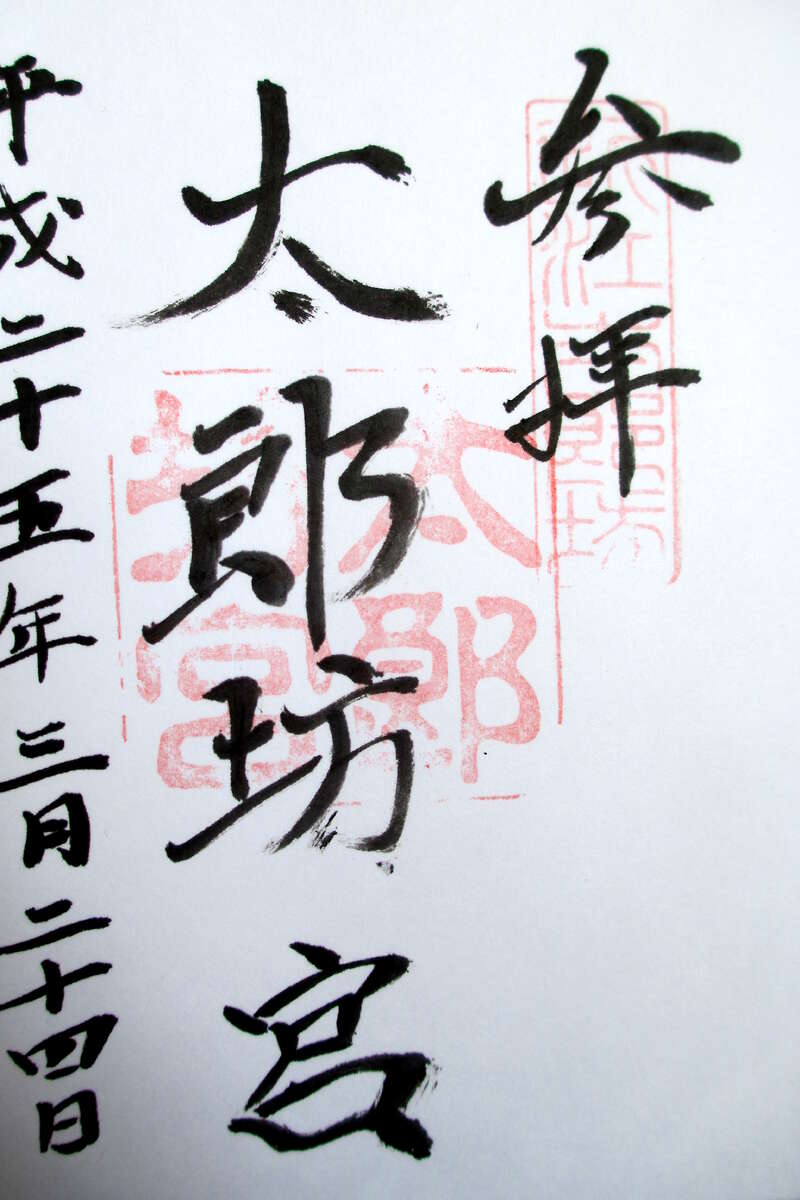 参拝
太郎坊宮
平成二十五年三月二十四日
太郎坊宮